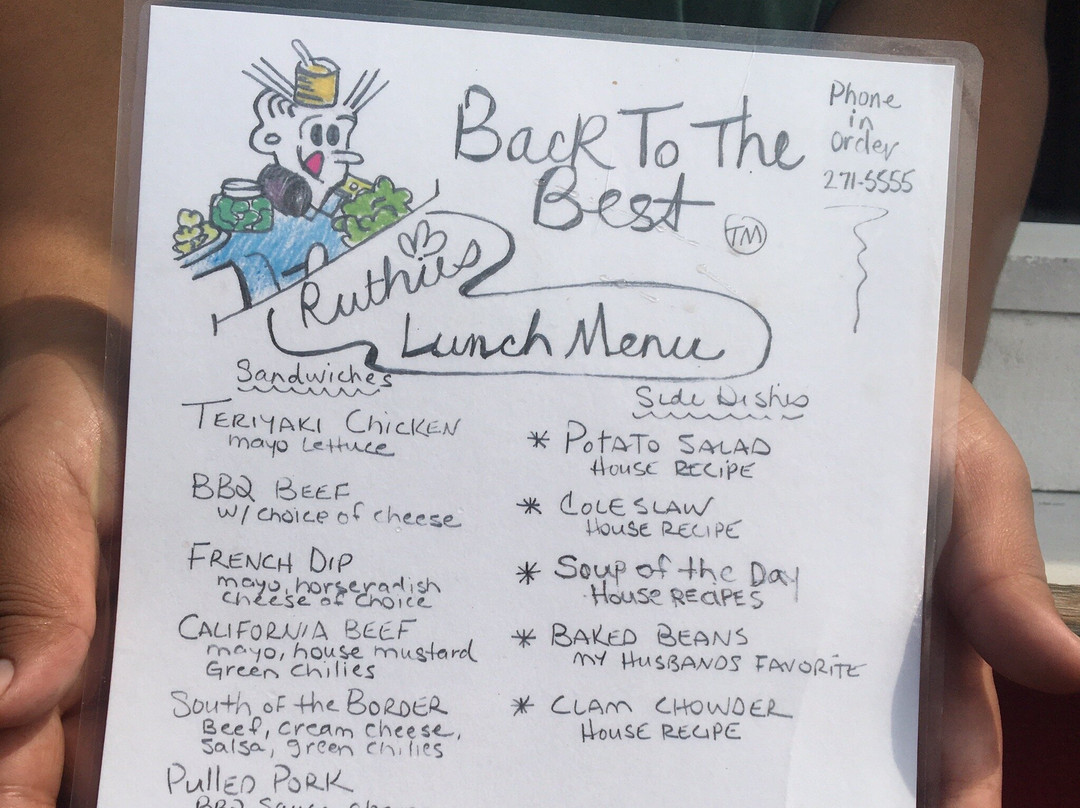 Back To The
Best
TM
Phone
in
order
271-5555
Ruthies
Lunch Menu
Sandwiches
TERIYAKI CHICKEN
mayo Lettuce
BBQ BEEF
W/ choice of cheese
FRENCH DIP
mayo, horseradish
cheese of choice
CALIFORNIA BEEF
mayo, house mustard
Green chilies
South of the BORDER
Beef, cream cheese,
Salsa, green chilies
Pulled PORK
BBQ Sauce
Side Dishes
* POTATO SALAD
HOUSE RECIPE
* COLESLAW
HOUSE RECIPE
* Soup of the Day
HOUSE RECIPES
* BAKED BEANS
MY HUSBANDS FAVORITE
* CLAM CHOWDER
HOUSE RECIPE